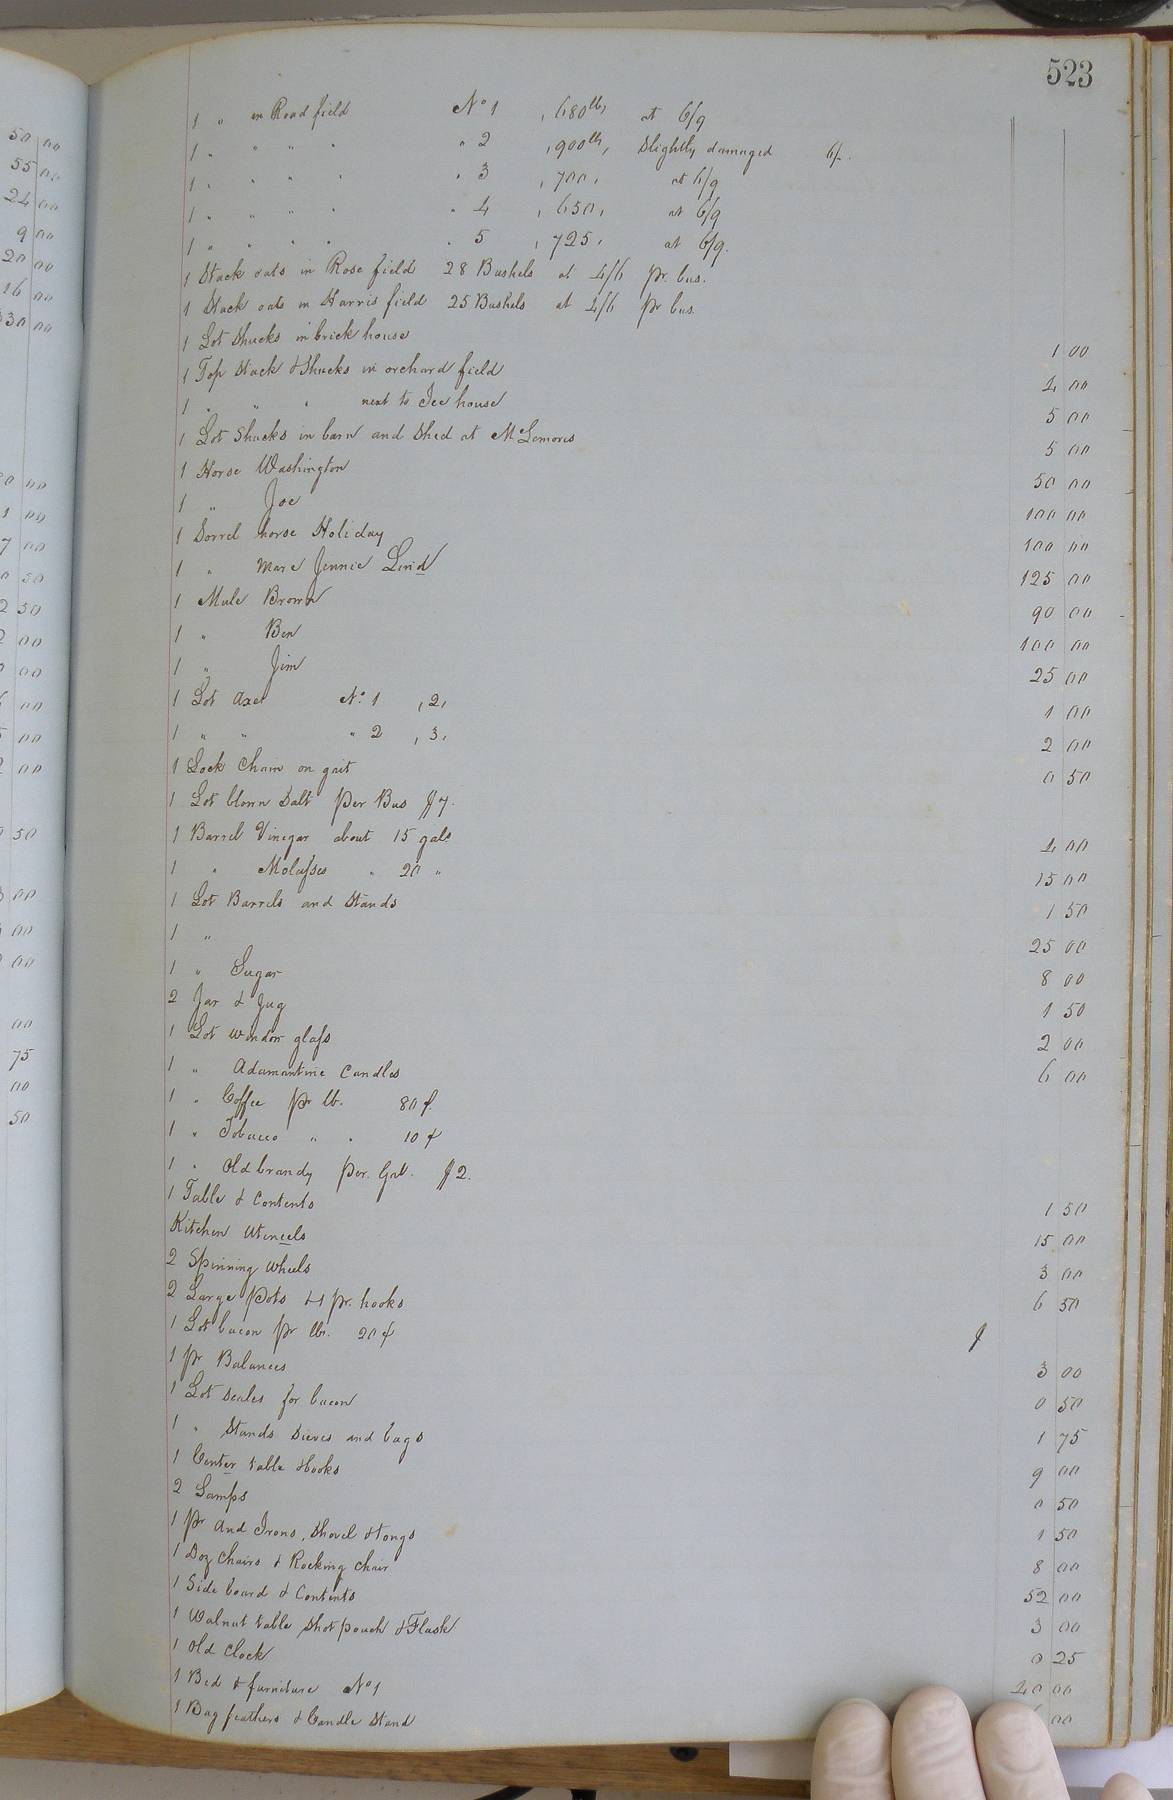 523
1 " in Road field No 1 , 680 lbs, at 6/9
1 " " " " " 2 , 900 lbs, Slightly damaged 6/-.
1 " " " " " 3 , 700, at 6/9
1 " " " " " 4 , 650, at 6/9
1 " " " " " 5 , 725, at 6/9.
1 Stack oats in Rose field 28 Bushels at 4/6 pr. bus.
1 Stack oats in Harris field 25 Bushels at 4/6 pr bus.
1 Lot Shucks in brick house 1 00
1 Top Stack & Shucks in orchard field 4 00
1 " " " next to Ice house 5 00
1 Lot Shucks in barn and Shed at McLemores 5 00
1 Horse Washington 50 00
1 " Joe 100 00
1 Sorrel horse Holiday 100 00
1 " Mare Jennie Lind 125 00
1 Mule Brown 90 00
1 " Ben 100 00
1 " Jim 25 00
1 Lot Axes No. 1 , 2, 1 00
1 " " " 2 , 3, 2 00
1 Lock Chain on gait 0 50
1 Lot blown Salt Per Bus $7.
1 Barrel Vinegar about 15 gals 4 00
1 " Molasses " 20 " 15 00
1 Lot Barrels and Stands 1 50
1 " 25 00
1 " Sugar 8 00
2 Jar & Jug 1 50
1 Lot window glass 2 00
1 " Adamantine Candles 6 00
1 " Coffee pr lb. 80 ¢.
1 " Tobacco " " 10 ¢
1 " Old brandy per. Gal. $2.
1 Table & Contents 1 50
Kitchen Utencels 15 00
2 Spinning Wheels 3 00
2 Large Pots & 1 pr. hooks 6 50
1 Lot bacon pr lb. 20 ¢
1 pr Balances 3 00
1 Lot Scales for bacon 0 50
1 " Stands Sieves and bags 1 75
1 Center table & books 9 00
2 Lamps 0 50
1 Pr And Irons, Shovel & tongs 1 50
1 Doz Chairs & Rocking Chair 8 00
1 Side board & Contents 52 00
1 Walnut table Shot pouch & Flask 3 00
1 Old Clock 0 25
1 Bed & furniture No 1 40 00
1 Bag feathers & Candle Stand 00